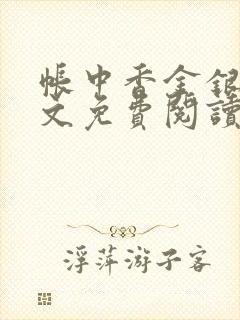 帳中香金銀
文免費閱讀
浮萍游子客